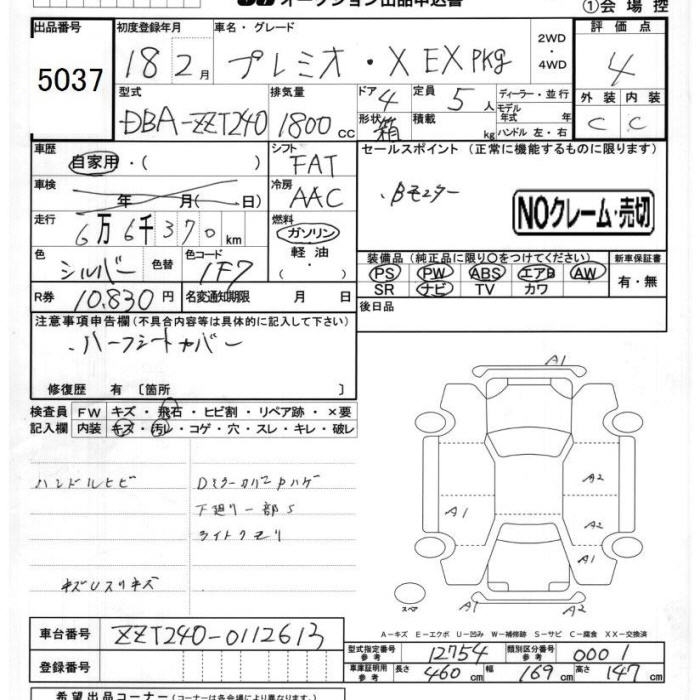 オークション出品申込書
①会場控
出品番号 初度登録年月 車名・グレード 2WD ・ 4WD 評価点
5037 18 2月 プレミオ・X EX PKg 4
型式 排気量 ドア 4 定員 5人 ディーラー・並行 外装 内装
DBA-ZZT240 1800cc 形状 箱 積載 kg モデル年式 年 ハンドル 左・右 C C
車歴 自家用・( ) シフト FAT セールスポイント (正常に機能するものに限ります)
車検 年 月( 日) 冷房 AAC ・Bモニター
走行 6万6千370km 燃料 ガソリン 軽油 ・ NOクレーム・売切
色 シルバー 色替 色コード 1F7 装備品(純正品に限り○をつけてください) 新車保証書
PS PW ABS エアB AW 有・無
R券 10.830円 名変通知期限 月 日 SR ナビ TV カワ
注意事項申告欄(不具合内容等は具体的に記入して下さい) 後日品
・ハーフシートカバー
修復歴 有〔箇所 〕
検査員 FW キズ・飛石・ヒビ割・リペア跡・×要
記入欄 内装 キズ・汚レ・コゲ・穴・スレ・キレ・破レ
A1
ハンドルヒビ Dミラーカバー Pハゲ A2
下廻り一部S
A1 A2
ライトクモリ
キズUスリキズ
スペア A1 A2
A-キズ E-エクボ U-凹み W-補修跡 S-サビ C-腐食 XX-交換済
車台番号 ZZT240-0112613
型式指定番号 参考 12754 類別区分番号 参考 0001
登録番号 車庫証明用 参考 長さ 460cm 幅 169cm 高さ 147cm
希望出品コーナー(コーナーは各会場により異なります)